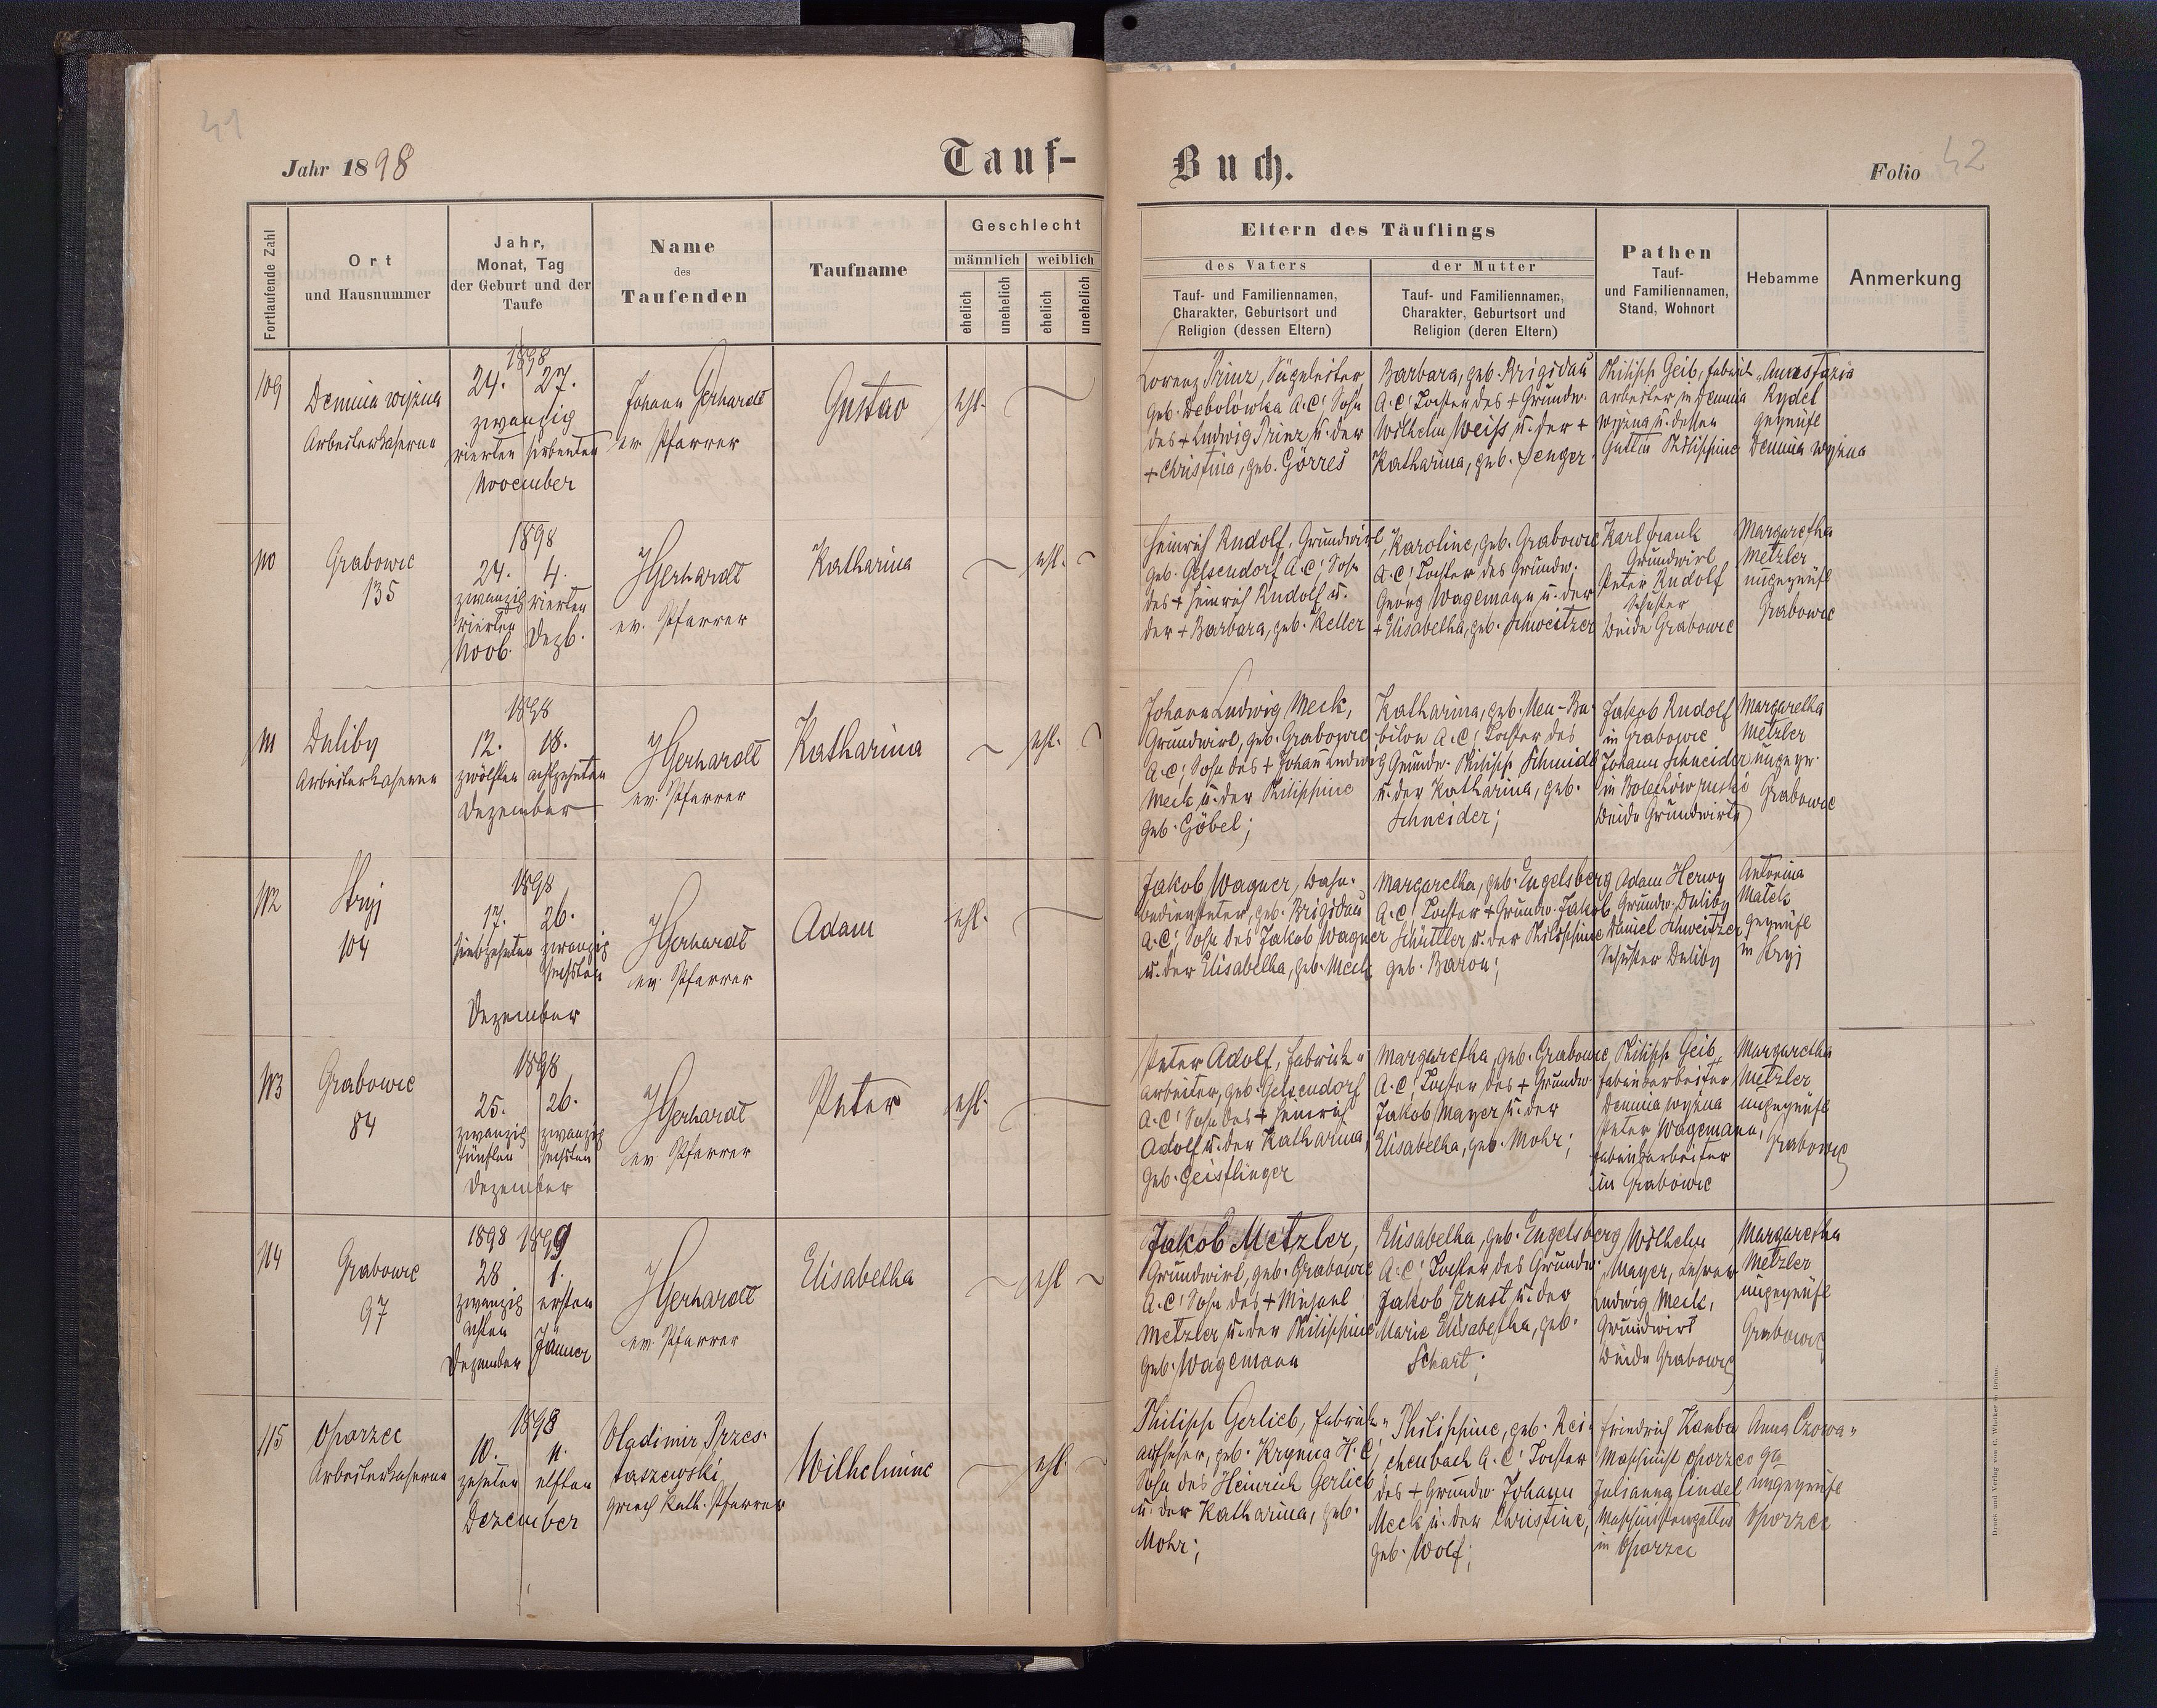 41
Jahr 1898
Tauf-
Buch.
Folio 42
Fortlaufende Zahl
Ort
und Hausnummer
Jahr,
Monat, Tag
der Geburt und der
Taufe
Name
des
Taufenden
Taufname
Geschlecht
männlich
weiblich
ehelich
unehelich
ehelich
unehelich
Eltern des Täuflings
des Vaters
Tauf- und Familiennamen,
Charakter, Geburtsort und
Religion (dessen Eltern)
der Mutter
Tauf- und Familiennamen,
Charakter, Geburtsort und
Religion (deren Eltern)
Pathen
Tauf-
und Familiennamen,
Stand, Wohnort
Hebamme
Anmerkung
109
Demnia wyżna
Arbeiterkaserne
1898
24. 27.
zwanzig
vierten siebenten
November
Johann Gerhardt
ev. Pfarrer
Gustav
ehl.
Lorenz Prinz, Sägeleiter
geb. Debolówka A.C! Sohn
des + Ludwig Prinz u. der
+ Christina, geb. Görres
Barbara, geb. Brigidau
A.C! Tochter des + Grundw.
Wilhelm Weiss u. der +
Katharina, geb. Senger
Philipp Geib, Fabrik-
arbeiter in Demnia
wyżna u. dessen
Gattin Philippine
Anastazia
Rydel
geprüft
Demnia wyżna
110
Grabowic
135
1898
24. 4.
zwanzig vierten
vierten
Novb. Dezb.
JGerhardt
ev. Pfarrer
Katharina
ehl.
Heinrich Rudolf, Grundwirt,
geb. Gelsendorf A.C! Sohn
des + Heinrich Rudolf u.
der + Barbara, geb. Keller
Karoline, geb. Grabowic
A.C! Tochter des Grundw.
Georg Wagemann u. der
+ Elisabetha, geb. Schweitzer
Karl Frank
Grundwirt
Peter Rudolf
Schuster
beide Grabowic
Margaretha
Metzler
ungeprüft
Grabowic
111
Duliby
Arbeiterkaserne
1898
12. 18.
zwölften achtzehnten
Dezember
JGerhardt
ev. Pfarrer
Katharina
ehl.
Johann Ludwig Meck,
Grundwirt, geb. Grabowic
A.C! Sohn des + Johan Ludwig
Meck u. der Philippine
geb. Göbel;
Katharina, geb. Neu-Ba-
bilon A.C! Tochter des
Grundw. Philipp Schmidt
u. der Katharina, geb.
Schneider;
Jakob Rudolf
in Grabowic
Johann Schneider
in Bolechów ruski
beide Grundwirte
Margaretha
Metzler
ungepr.
Grabowic
112
Stryj
104
1898
17. 26.
siebzehnten zwanzig
sechsten
Dezember
JGerhardt
ev. Pfarrer
Adam
ehl.
Jakob Wagner, Bahn-
bediensteter, geb. Brigidau
A.C! Sohn des Jakob Wagner
u. der Elisabetha, geb. Meck
Margaretha, geb. Engelsberg
A.C! Tochter + Grundw. Jakob
Schüttler u. der Philippine
geb. Baron;
Adam Herwy
Grundw. Duliby
Daniel Schweitzer
Schuster Duliby
Antonina
Matek
geprüft
in Stryj
113
Grabowic
84
1898
25. 26.
zwanzig zwanzig
fünften sechsten
Dezember
JGerhardt
ev. Pfarrer
Peter
ehl.
Peter Adolf, Fabrick-
arbeiter, geb. Gelsendorf
A.C! Sohn des + Heinrich
Adolf u. der Katharina,
geb. Geistlinger
Margaretha, geb. Grabowic
A.C! Tochter des + Grundw.
Jakob Mayer u. der
Elisabetha, geb. Mohr;
Philipp Geib
Fabriksarbeiter
Demnia wyżna
Peter Wagemann,
Fabriksarbeiter
in Grabowic
Margaretha
Metzler
ungeprüft
Grabowic
114
Grabowic
97
1898 1899
28 1.
zwanzig ersten
achten
Dezember Jänner
JGerhardt
ev. Pfarrer
Elisabetha
ehl
Jakob Metzler,
Grundwirt, geb. Grabowic
A.C! Sohn des + Michael
Metzler u. der Philippine
geb. Wagemann
Elisabetha, geb. Engelsberg
A.C! Tochter des Grundw.
Jakob Ernst u. der
Marie Elisabetha, geb.
Schart;
Wilhelm
Mayer, Lehrer
Ludwig Meck,
Grundwirt
beide Grabowic
Margaretha
Metzler
ungeprüft
Grabowic
115
Oporzec
Arbeiterkaserne
1898
10. 11.
zehnten elften
Dezember
Vladimir Przes-
taszewski
griech kath. Pfarrer
Wilhelmine
ehl.
Philipp Gerlieb, Fabrik-
aufseher, geb. Krynica H.C!
Sohn des Heinrich Gerlieb
u. der Katharina, geb.
Mohr;
Philippine, geb. Rei-
chenbach A.C! Tochter
des + Grundw. Johann
Meck u. der Christine,
geb. Wolf;
Friedrich Kauba
Maschinist Oporzec
Julianna Lindel
Maschinistensgattin
in Oporzec
Anna Czowa-
ga
ungeprüft
Oporzec